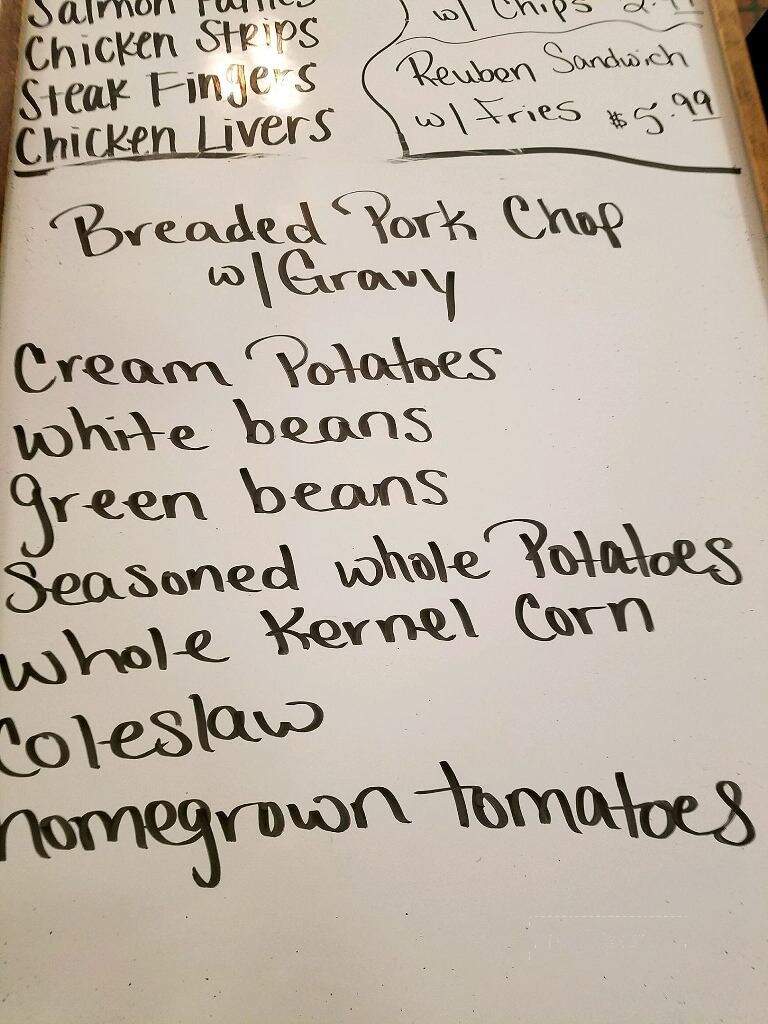 Salmon Patties
Chicken Strips
Steak Fingers
Chicken Livers
w/ Chips
Reuben Sandwich
w/ Fries $5.99
Breaded Pork Chop
w/ Gravy
Cream Potatoes
white beans
green beans
Seasoned whole Potatoes
whole Kernel Corn
Coleslaw
homegrown tomatoes